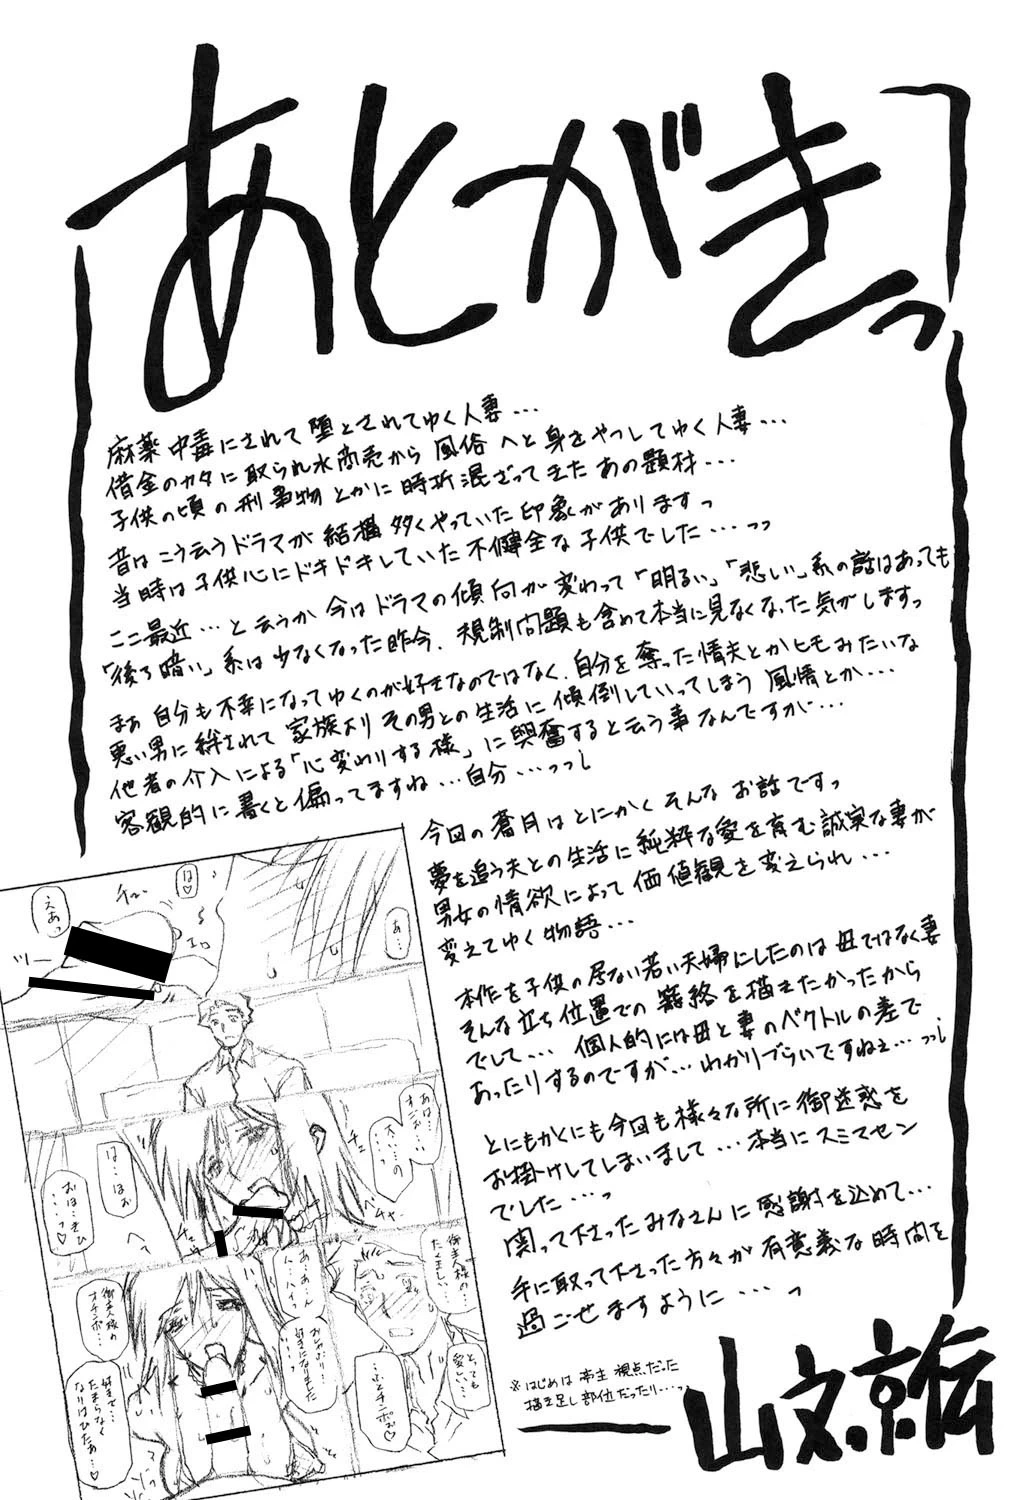 あとがきっ
麻薬中毒にされて堕とされてゆく人妻…
借金のカタに取られ水商売から風俗へと身をやつしてゆく人妻…
子供の頃の刑事物とかに時折混ざってきたあの題材…
昔はこう云うドラマが結構多くやっていた印象がありますっ
当時は子供心にドキドキしていた不健全な子供でした…っっ
ここ最近…と云うか今はドラマの傾向が変わって「明るい」「悲しい」系の話はあっても
「後ろ暗い」系は少なくなった昨今、規制問題も含めて本当に見なくなった気がしますっ
まぁ自分も不幸になってゆくのが好きなのではなく、自分を奪った情夫とかヒモみたいな
悪い男に絆されて家族よりその男との生活に傾倒していってしまう風情とか…
他者の介入による「心変わりする様」に興奮すると云う事なんですが…
客観的に書くと偏ってますね…自分…っっ;
今回の蒼月はとにかくそんなお話ですっ
夢を追う夫との生活に純粋な愛を育む誠実な妻が
男女の情欲によって価値観を変えられ…
変えてゆく物語…
本作を子供の居ない若い夫婦にしたのは母ではなく妻
そんな立ち位置での
を描きたかったから
でして… 個人的には母と妻のベクトルの差で
あったりするのですが…わかりづらいですねぇ…っっ;
とにもかくにも今回も様々な所に御迷惑を
お掛けしてしまいまして…本当にスミマセン
でした…っ
関って下さったみなさんに感謝を込めて…
手に取って下さった方々が有意義な時間を
過ごせますように…っ
※はじめは亭主視点だった
描き足し部位だったり…っ
山文京伝